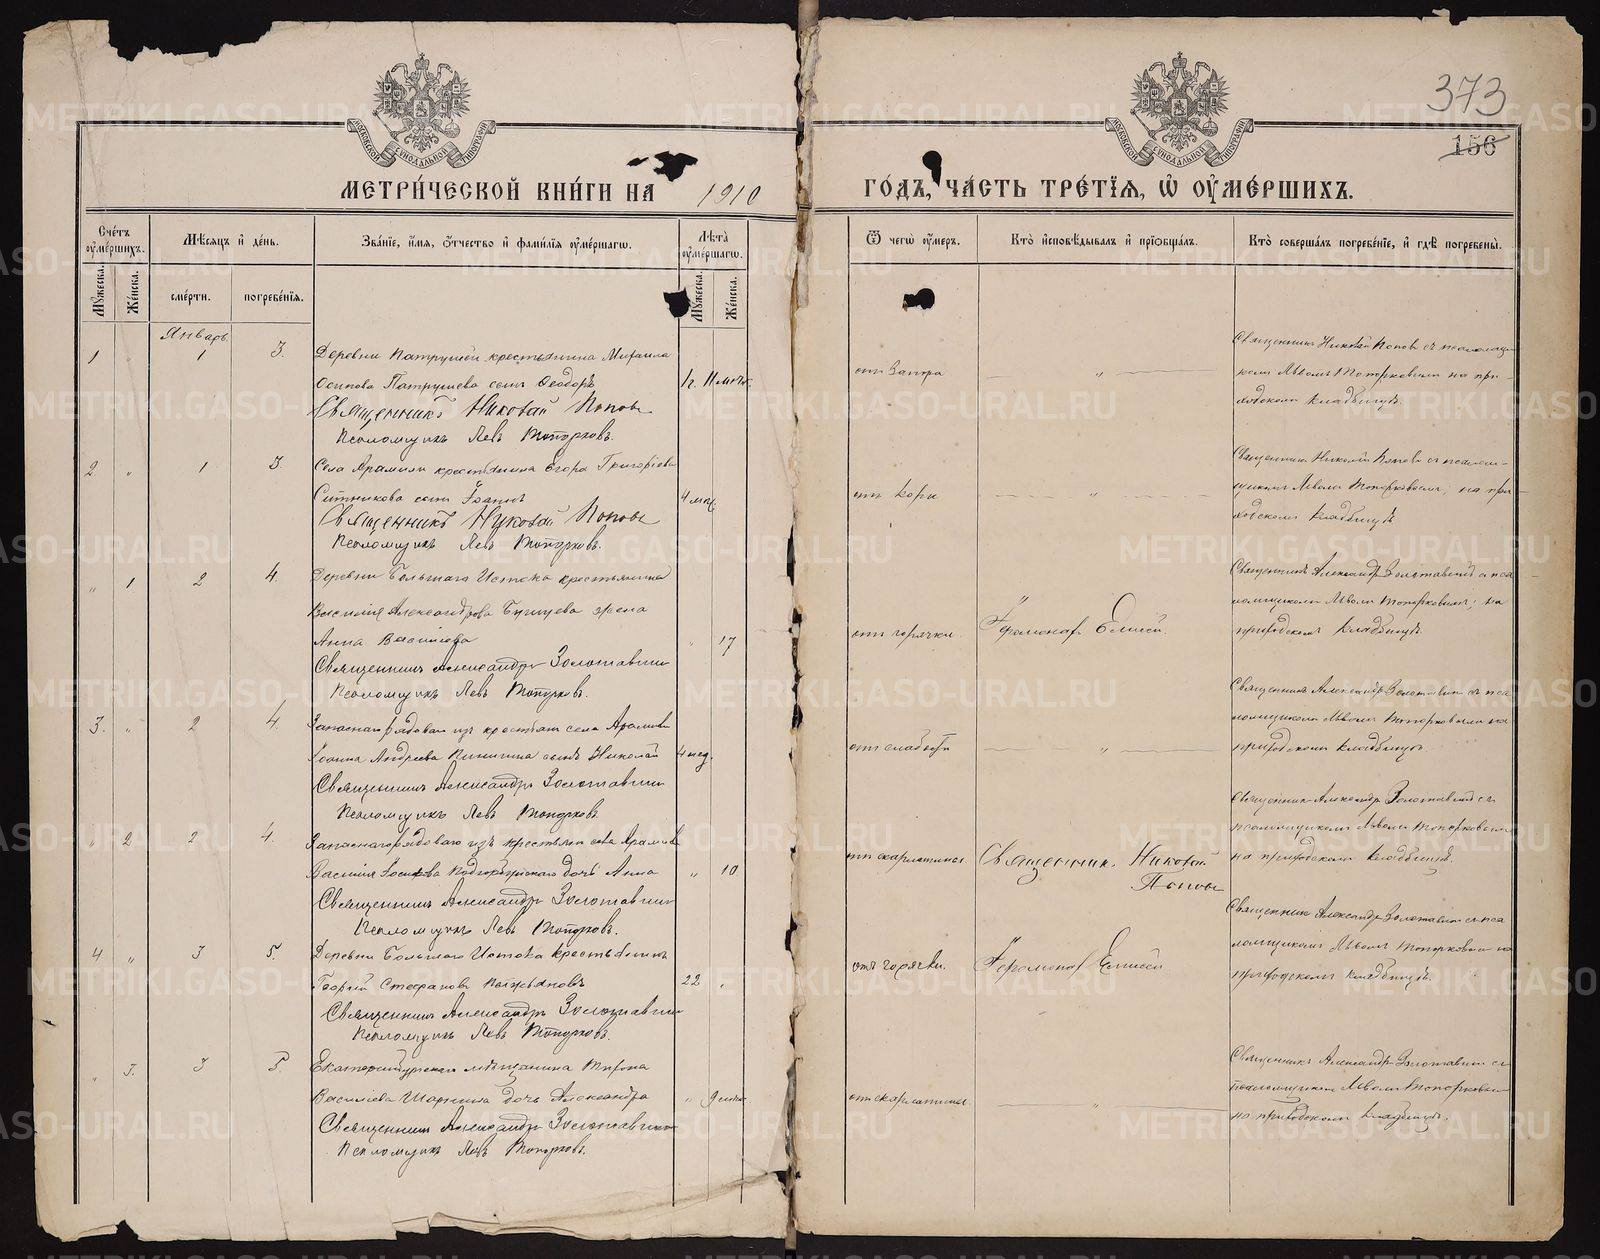 373
156
МОСКОВСКОЙ СУНОДАЛЬНОЙ ТИПОГРАФИИ
МОСКОВСКОЙ СУНОДАЛЬНОЙ ТИПОГРАФИИ
МЕТРИ́ЧЕСКОЙ КНИ́ГИ НА 1910
ГО́ДЪ, ЧА́СТЬ ТРЕ́ТІЯ, Ѽ ОУ҆МЕ́РШИХЪ.
Сче́тъ оу҆ме́ршихъ.
Мѣ́сяцъ и҆ де́нь.
Зва́ніе, и҆́мя, ѻ҆́тчество и҆ фами́лія оу҆ме́ршагѡ.
Лѣ́та оу҆ме́ршагѡ.
Ѿ чегѡ̀ оу҆́меръ.
Кто̀ и҆сповѣ́дывалъ и҆ прїѡбща́лъ.
Кто̀ соверша́лъ погребе́ніе, и҆ гдѣ̀ погребены̀.
Му́жеска.
Же́нска.
сме́рти.
погребе́нія.
Му́жеска.
Же́нска.
Январь
1 1 3. Деревни Патрушей крестьянина Михаила
Осипова Патрушева сынъ Ѳеодоръ 1 г. 11 мѣс.
Священникъ Николай Поповъ
Псаломщикъ Левъ Топорковъ.
отъ запора
Священникъ Николай Поповъ съ псаломщи-
комъ Львомъ Топорковымъ на при-
ходскомъ кладбищѣ.
2 " 1 3. Села Арамили крестьянина Егора Григоріева
Ситникова сынъ Іоаннъ 4 мѣс.
Священникъ Николай Поповъ
Псаломщикъ Левъ Топорковъ.
отъ кори
Священникъ Николай Поповъ съ псалом-
щикомъ Львомъ Топорковымъ, на при-
ходскомъ кладбищѣ
" 1 2 4. Деревни Большаго Истока крестьянина
Василія Александрова жена
Анна Васильева " 17
Священникъ Александръ Золотавинъ
Псаломщикъ Левъ Топорковъ.
отъ горячки Іеромонахъ Елисей.
Священникъ Александръ Золотавинъ съ пса
ломщикомъ Львомъ Топорковымъ, на
приходскомъ кладбищѣ.
3. " 2 4. Запаснаго рядоваго изъ крестьянъ села Арамили
Іоанна Андреева сынъ Николай 4 нед.
Священникъ Александръ Золотавинъ
Псаломщикъ Левъ Топорковъ
отъ слабости
Священникъ Александръ Золотавинъ съ пса
ломщикомъ Львомъ Топорковымъ на
приходскомъ кладбищѣ.
" 2 2 4. Запаснаго рядоваго изъ крестьянъ села Арамили
Василія дочь Анна " 10
Священникъ Александръ Золотавинъ
Псаломщикъ Левъ Топорковъ.
отъ скарлатины Священникъ Николай
Поповъ
Священникъ Александръ Золотавинъ съ
псаломщикомъ Львомъ Топорковымъ
на приходскомъ кладбищѣ.
4 " 3 5. Деревни Большаго Истока крестьянинъ
Георгій Стефановъ 22 "
Священникъ Александръ Золотавинъ
Псаломщикъ Левъ Топорковъ.
отъ горячки. Іеромонахъ Елисей
Священникъ Александръ Золотавинъ съ пса
ломщикомъ Львомъ Топорковымъ на
приходскомъ кладбищѣ.
" 3. 3 5. Екатеринбургскаго мѣщанина
Васильева дочь Александра " 9
Священникъ Александръ Золотавинъ
Псаломщикъ Левъ Топорковъ.
отъ скарлатины
Священникъ Александръ Золотавинъ съ
псаломщикомъ Львомъ Топорковымъ
на приходскомъ кладбищѣ.
METRIKI.GASO-URAL.RU